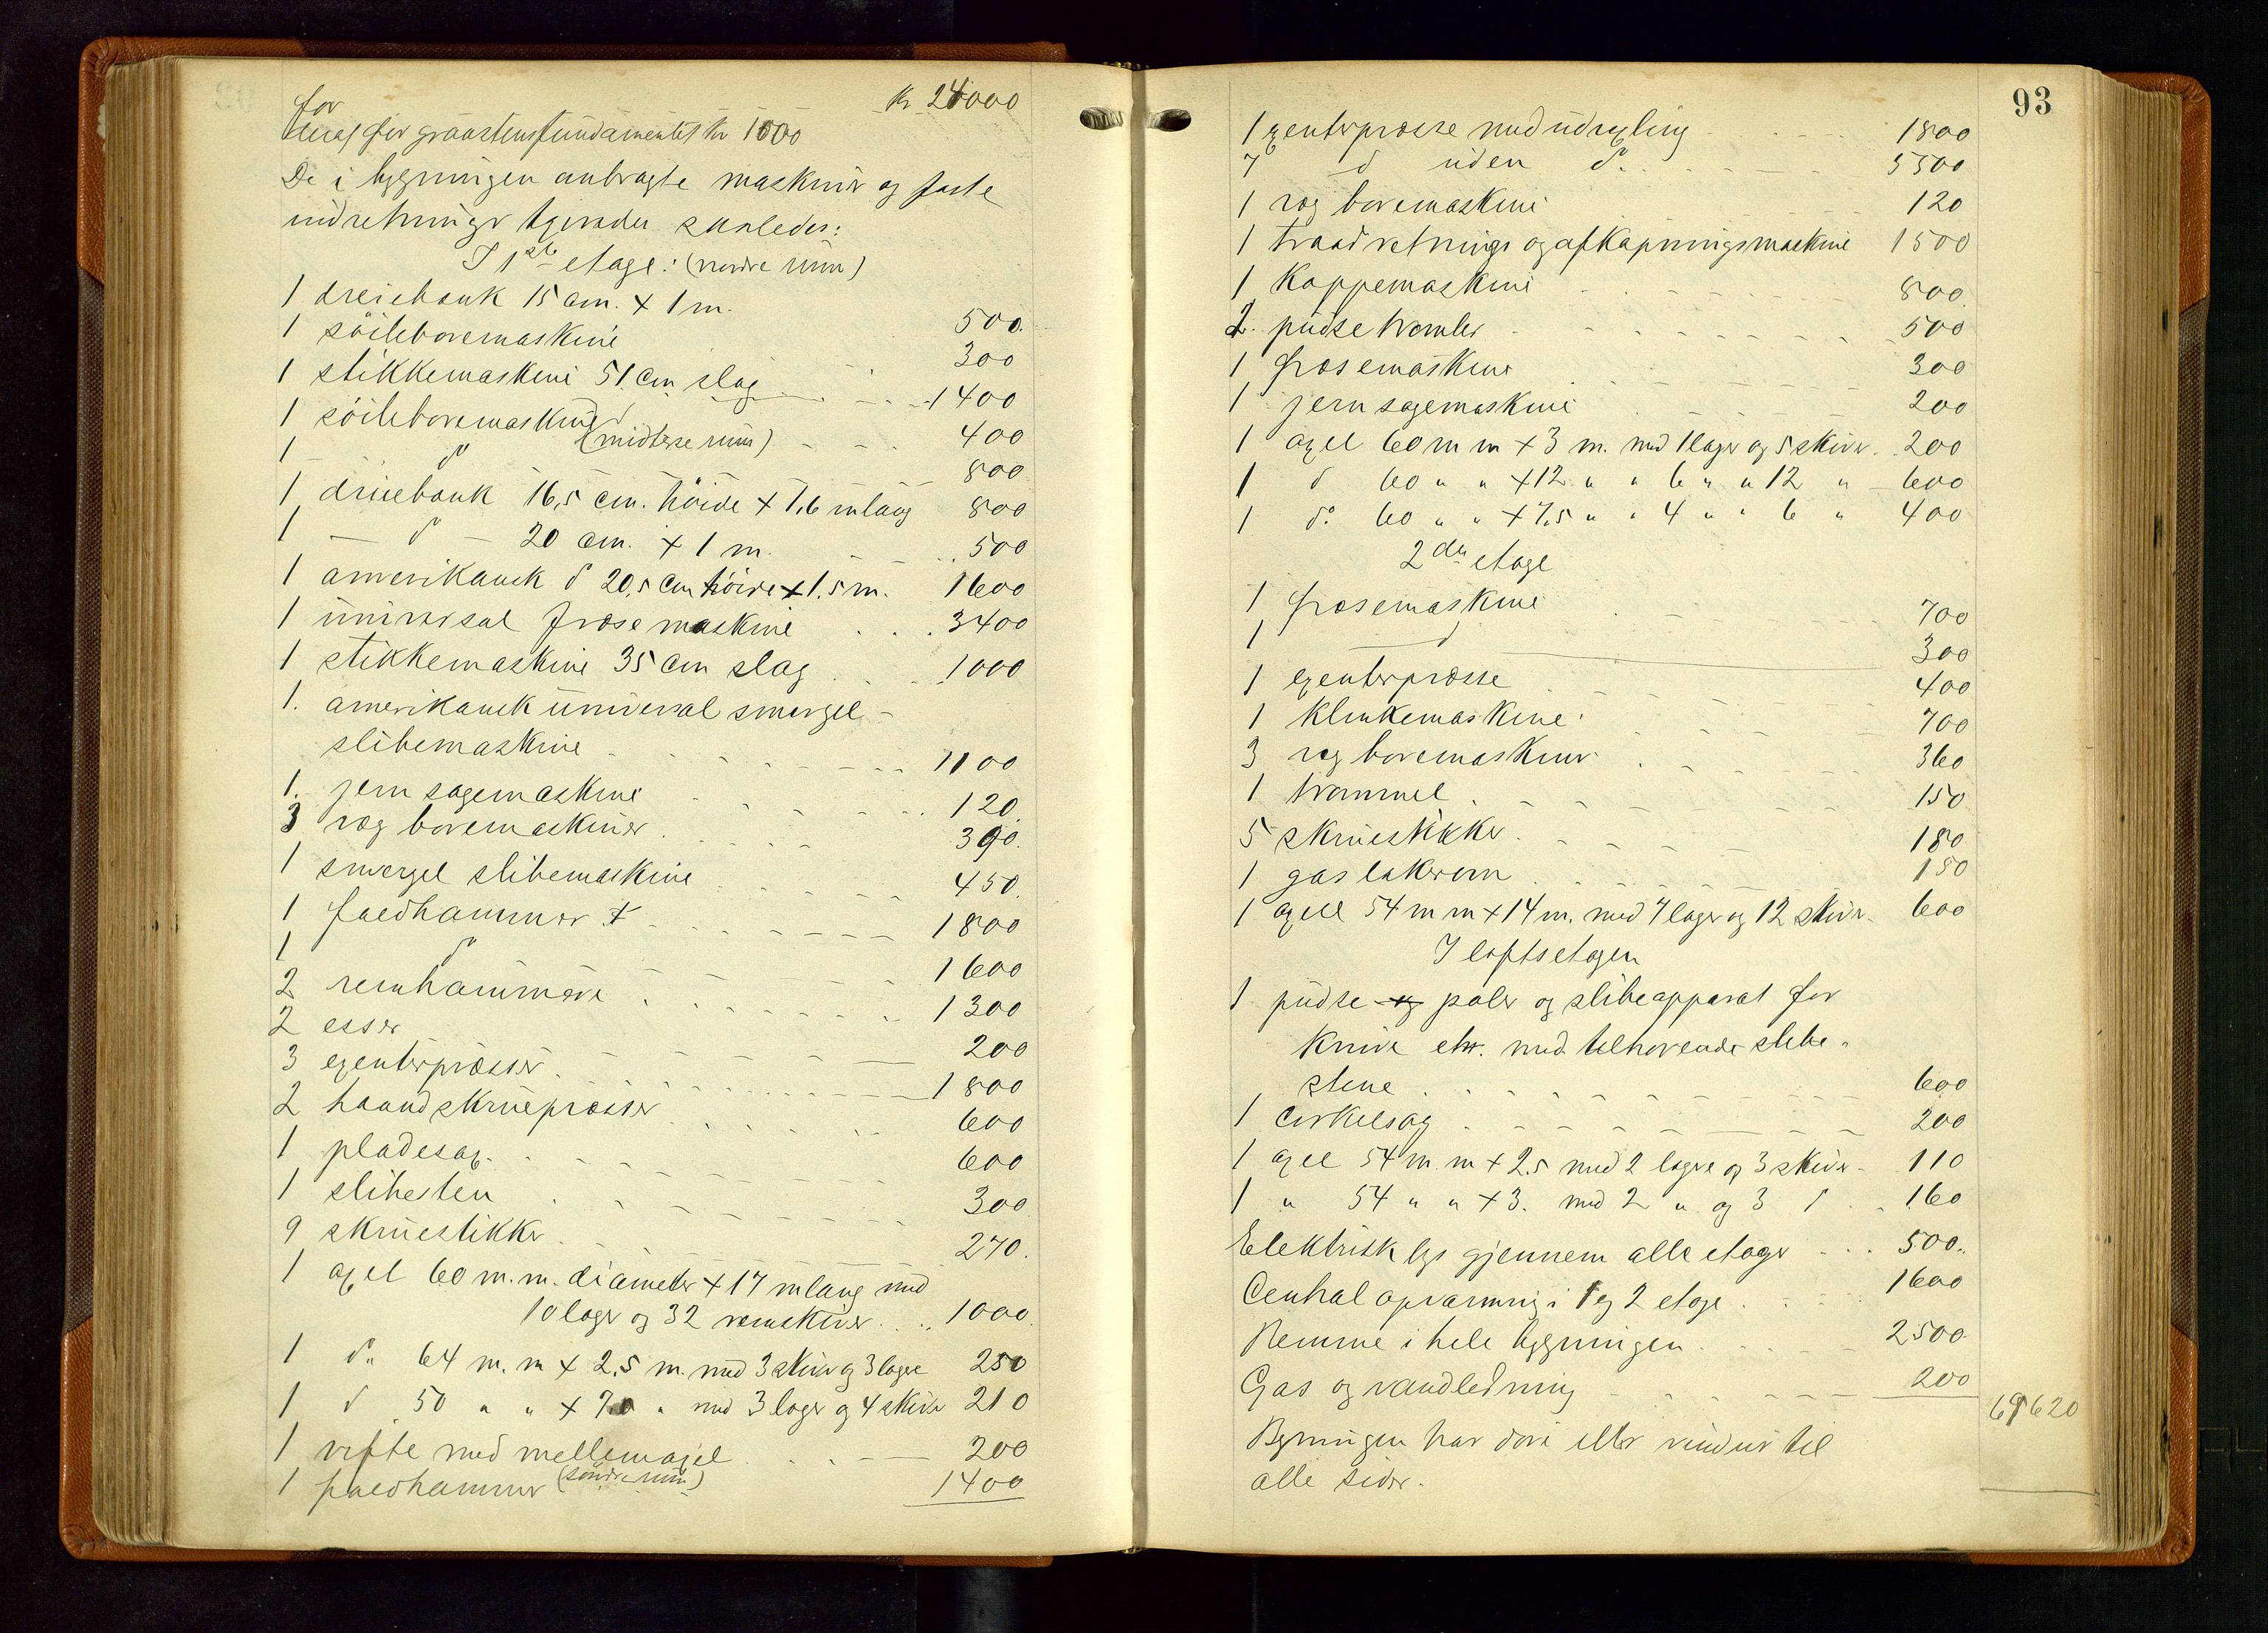 for Kr 24000
deraf for graastensfundamentet kr 1000
De i bygningen anbragte maskiner og faste
indretninger skades saaledes:
I 1ste etage: (nordre rum)
1 dreiebank 15 cm. x 1 m. 500.
1 söileboremaskine 300
1 stikkemaskine 51 cm slag 1400
1 söileboremaskine 400
1 do (midterse rum) 800
1 dreiebank 16,5 cm. höide x 1,6 m lang 800
1 — do — 20 cm. x 1 m. 500
1 amerikansk do 20,5 cm höide x 1.5 m. 1600
1 universal fræsemaskine 3400
1 stikkemaskine 35 cm slag 1000
1. amerikansk universal smergel-
slibemaskine 1100
1. jernsagemaskine 120.
3 væg boremaskiner 390.
1 smergel slibemaskine 450.
1 faldhammer x 1800
1 do 1600
2 remhammere 1300
2 esser 200
3 exenterpresser 1800
2 haandskruepresser 600
1 pladesax 600
1 slibesten 300
9 skruestikker 270.
1 axel 60 m.m. diameter x 17 m lang med
10 lager og 32 remskiver 1000.
1 do 64 m.m x 2.5 m. med 3 skiver og 3 lagere 250
1 do 50 " " x 7.0 " med 3 lager og 4 skiver 210
1 vifte med mellemaxel 200
1 faldhammer (söndre rum) 1400
93
1 exenterpresse med udvexling 1800
7 do uden do 5500
1 væg boremaskine 120
1 traadretnings og afkapningsmaskine 1500
1 kappemaskine 800.
2. pudsetromler 500
1 fræsemaskine 300
1 jernsagemaskine 200
1 axel 60 m m x 3 m. med 1 lager og 5 skiver 200
1 do 60 " " x 12 " " 6 " " 12 " 600
1 do 60 " " x 7.5 " " 4 " " 6 " 400
2den etage
1 fræsemaskine 700
1 do 300
1 exenterpresse 400
1 klinkemaskine 700
3 væg boremaskiner 360
1 trommel 150
5 skruestikker 180
1 gas lakerovn 150
1 axel 54 m m x 14 m. med 7 lager og 12 skiver 600
I loftsetagen
1 pudse poler og slibeapparat for
knive etc. med tilhörende slibe-
stene 600
1 cirkelsag 200
1 axel 54 m.m x 2.5 med 2 lagere og 3 skiver 110
1 " 54 " " x 3. med 2 " og 3 do 160
Elektrisk lys gjennem alle etager 500.
Central opvarming i 1 og 2 etage 1600
Remme i hele bygningen 2500.
Gas og vandledning 200
69620
Bygningen har döre eller vinduer til
alle sider.